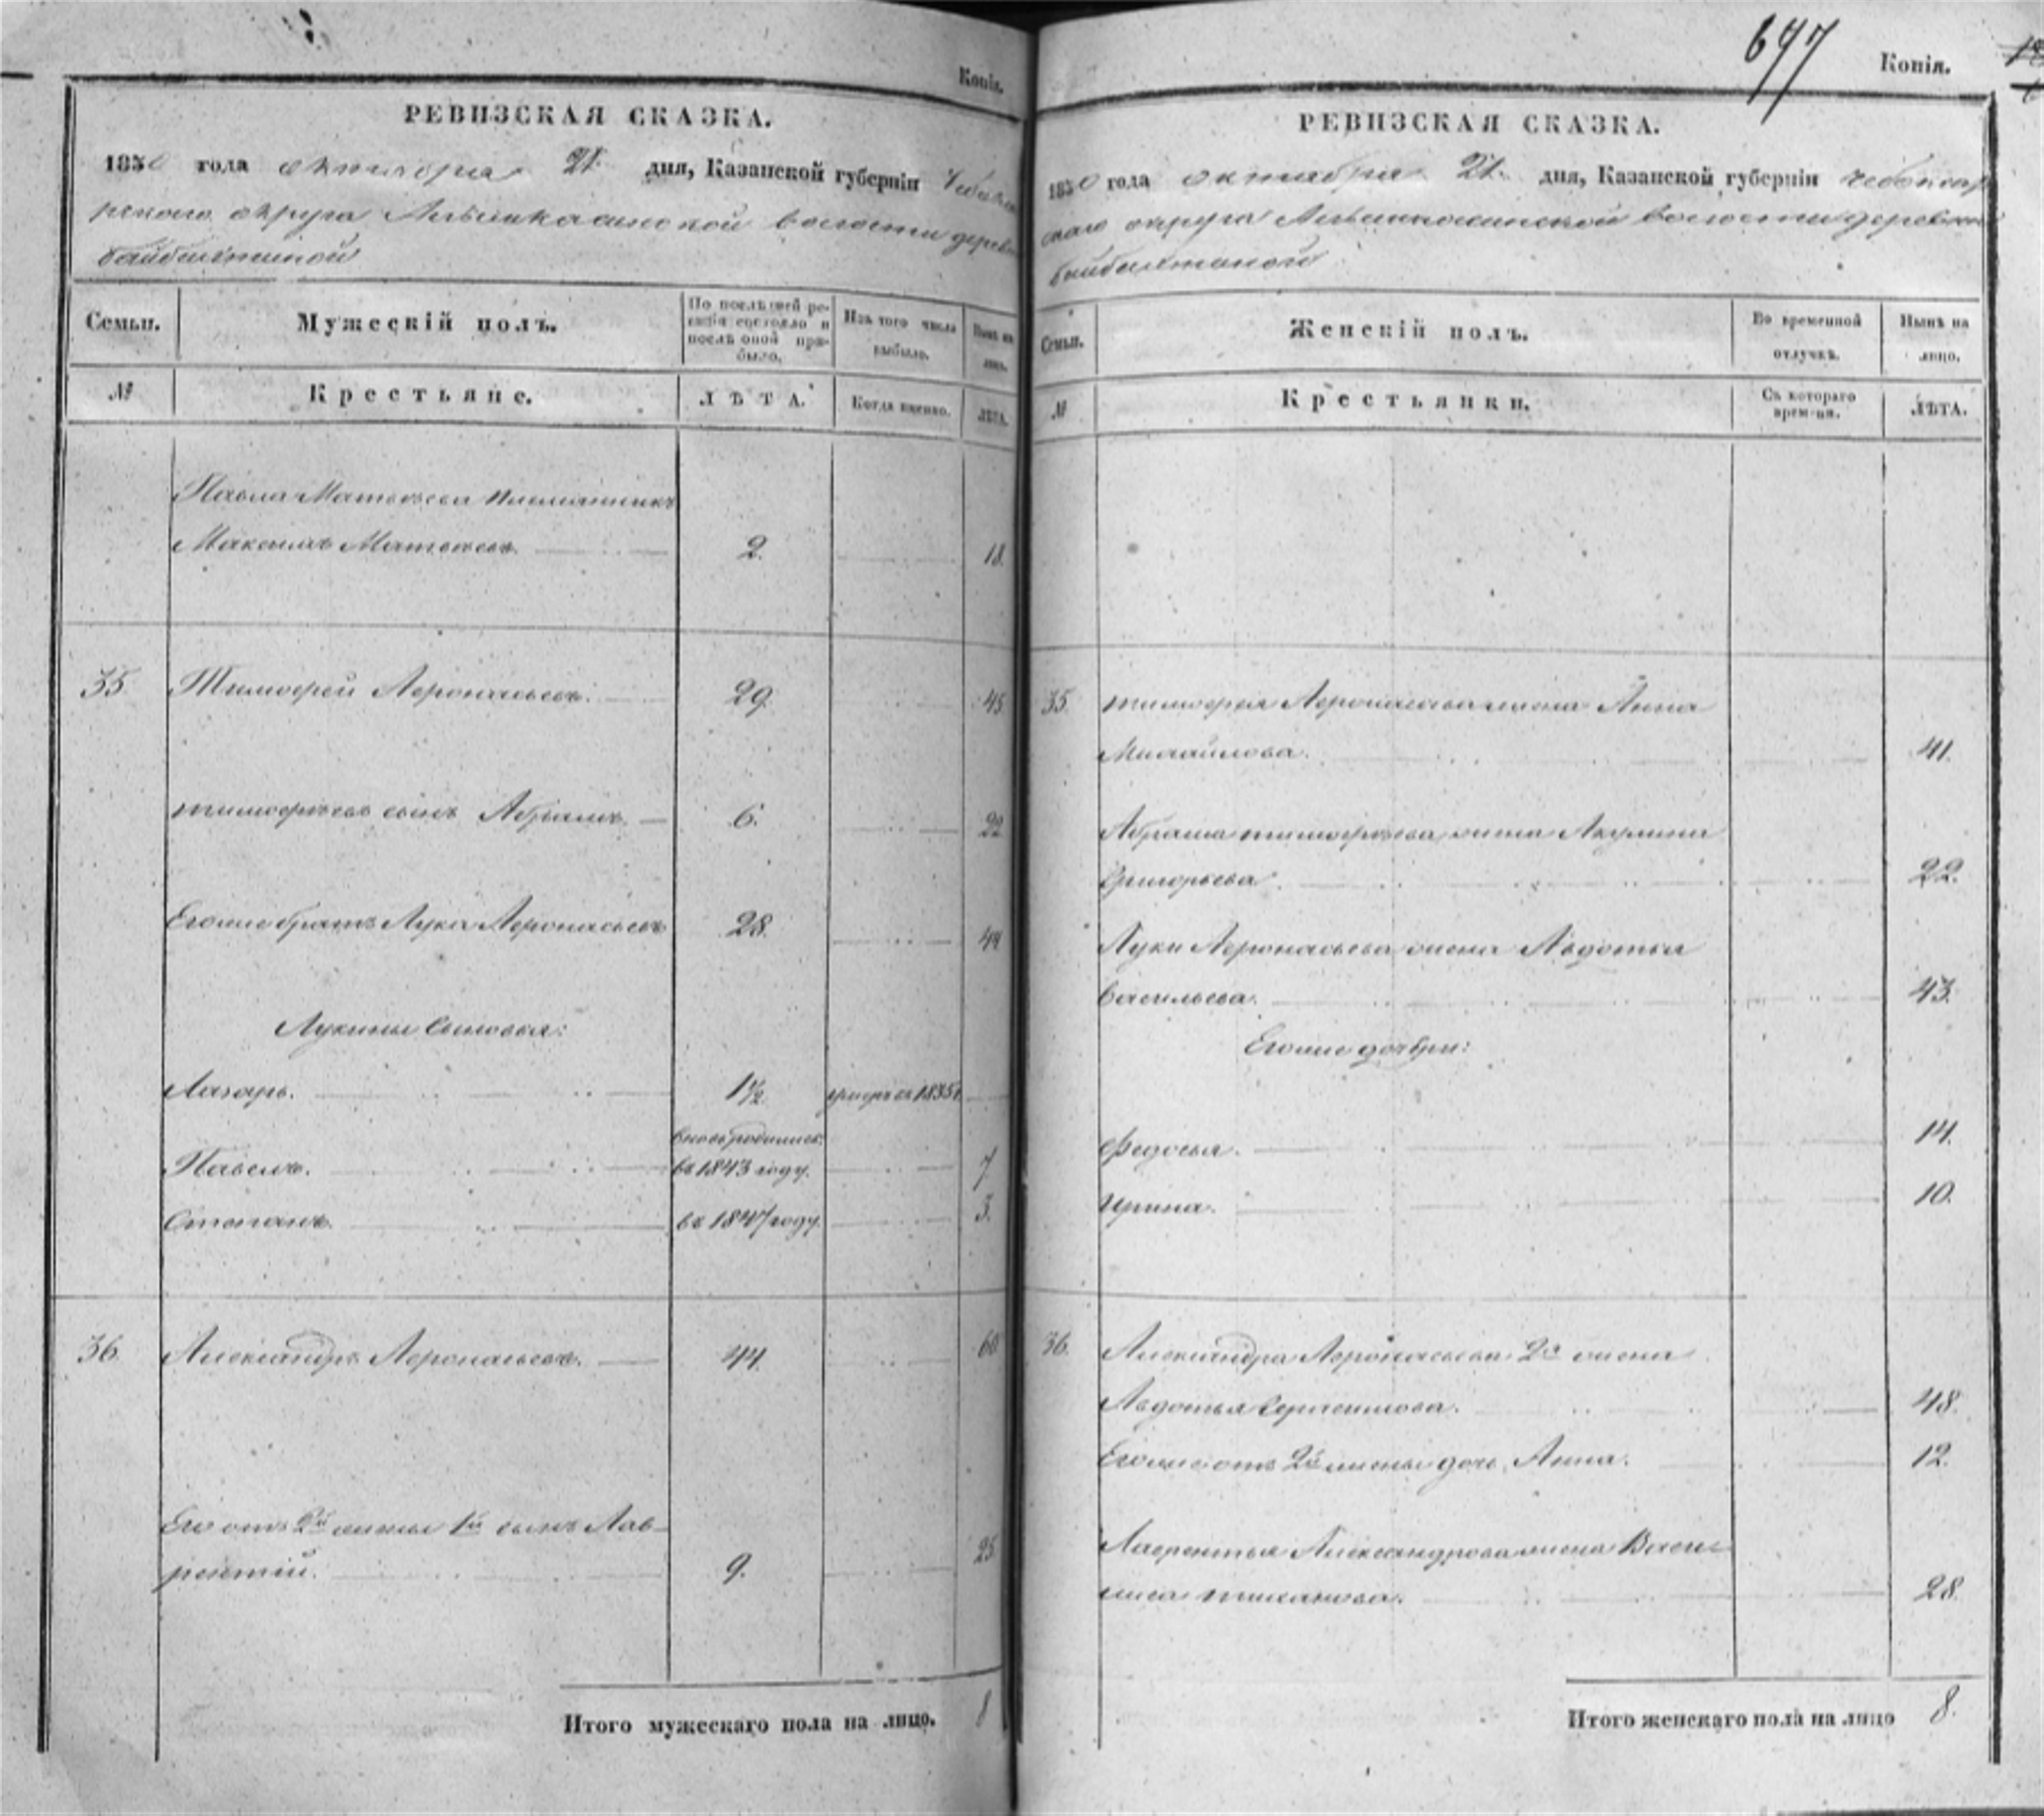 Копія.
РЕВИЗСКАЯ СКАЗКА.
1850 года октября 21 дня, Казанской губерніи Чебокса
рскаго округа волости дерев
Семьи.
Мужескій полъ.
По послѣдней ре-
визіи состояло и
послѣ оной при-
было.
Изъ того числа
выбыло.
Нынѣ на
лицо.
№
Крестьяне.
ЛѢТА.
Когда именно.
ЛѢТА.
Павла Матвѣева племянникъ
Максимъ Матвѣевъ. 2. 18.
35 Тимофей Афонасьевъ. 29. 45
тимофѣевъ сынъ Абрамъ. 6. 22
Егоже братъ Лука Афонасьевъ 28. 44
Лукины сыновья:
Лазарь. 1½ умеръ въ 1835 г.
вновь родились:
Павелъ. въ 1843 году. 7
Степанъ. въ 1847 году. 3.
36. Александръ Афонасьевъ. 44. 60
Его отъ 2й жены 1й сынъ Лав-
рентій. 9. 25
Итого мужескаго пола на лицо. 8
677
Копія.
РЕВИЗСКАЯ СКАЗКА.
1850 года октября 21. дня, Казанской губерніи чебоксар
скаго округа волости деревни
Семьи.
Женскій полъ.
Во временной
отлучкѣ.
Нынѣ на
лицо.
№
Крестьянки.
Съ котораго
времени.
ЛѢТА.
35. тимофея Афонасьева жена Анна
Михайлова. 41.
Абрама тимофѣева жена Акулина
Григорьева. 22.
Луки Афонасьева жена Авдотья
Васильева. 43.
Егоже дочери:
Федосья. 14.
Ирина. 10.
36. Александра Афонасьева 2я жена
Авдотья 48.
Егоже отъ 2й жены дочь Анна. 12.
Лаврентья Александрова жена Васи-
лиса тиханова. 28.
Итого женскаго пола на лицо 8.